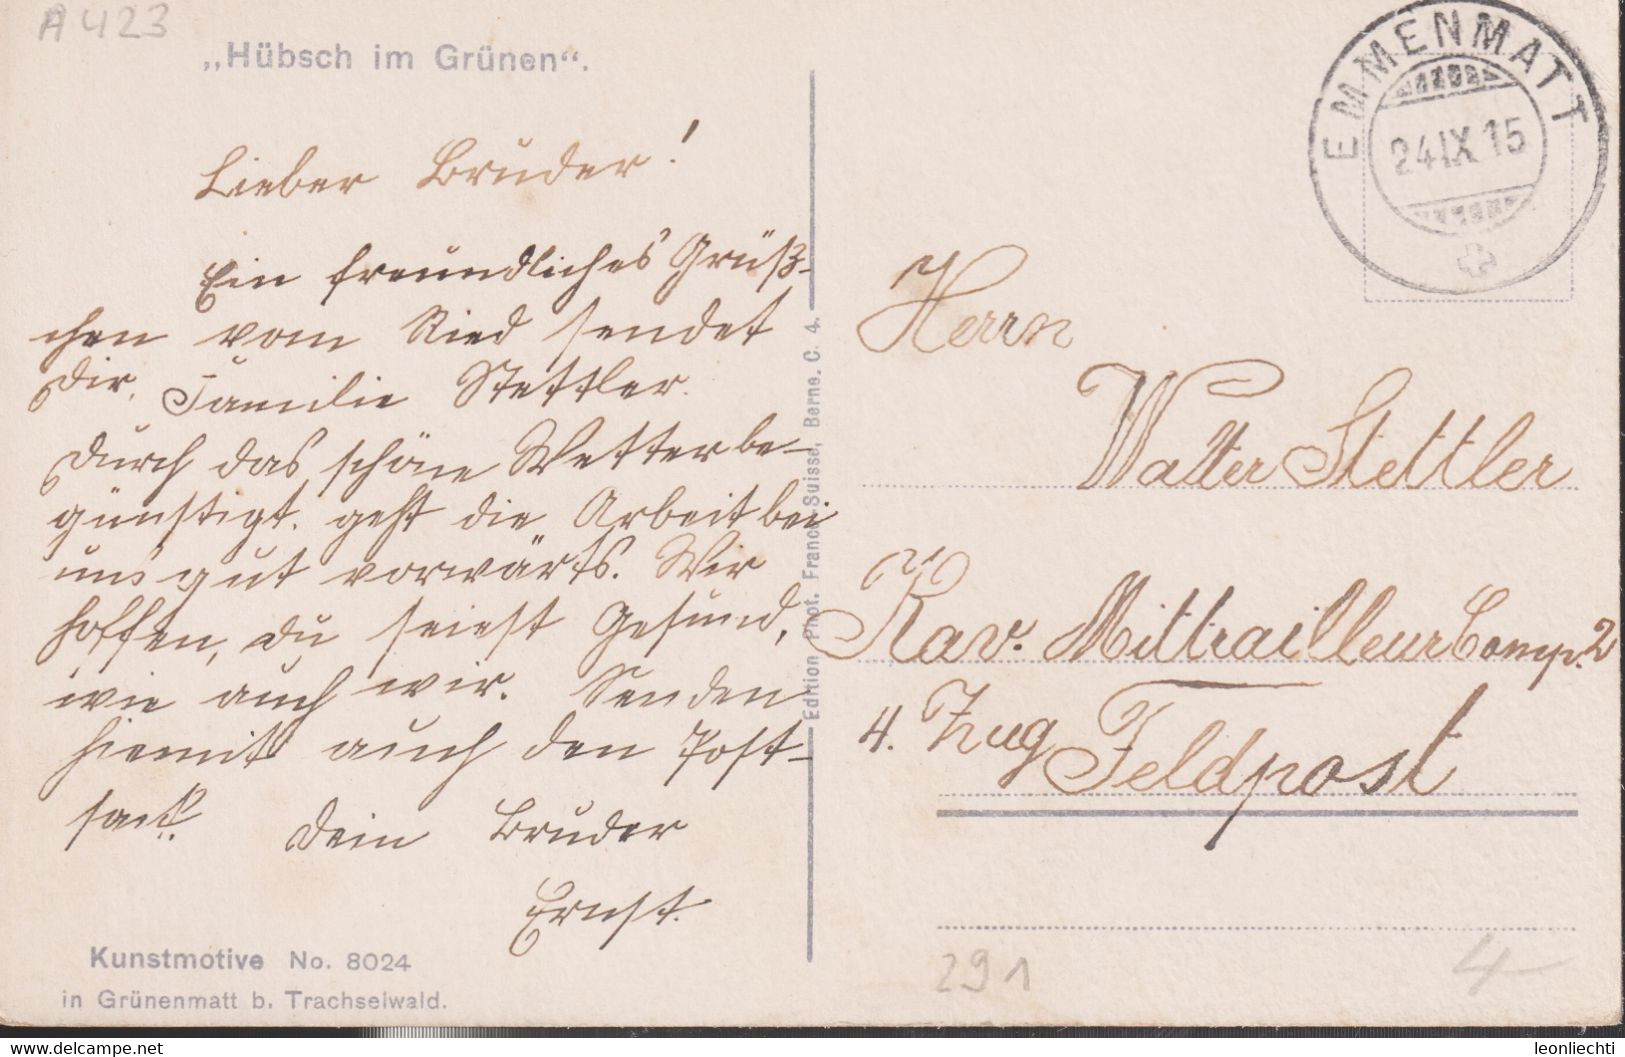 A 423
„Hübsch im Grünen“.
Lieber Bruder!
Ein freundliches Grüß-
chen vom Ried sendet
Dir, Familie Stettler.
Durch das schöne Wetter be-
günstigt, geht die Arbeit bei
uns gut vorwärts. Wir
hoffen, du seiest gesund,
wie auch wir. Senden
hiemit auch den Post-
sack.
Dein Bruder
Ernst.
Kunstmotive No. 8024
in Grünenmatt b. Trachselwald.
Edition Phot. Franco-Suisse, Berne. C. 4.
EMMENMATT
24 IX 15
Herrn
Walter Stettler
Kav. Mittrailleur Comp. 2
4. Zug Feldpost
291
4
https://www.delcampe.net
leonliechti